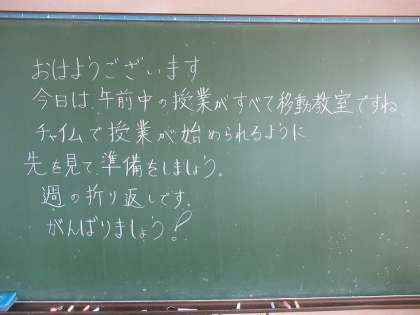 おはようございます
今日は、午前中の授業がすべて移動教室ですね
チャイムで授業が始められるように
先を見て、準備をしましょう。
週の折り返しです。
がんばりましょう!